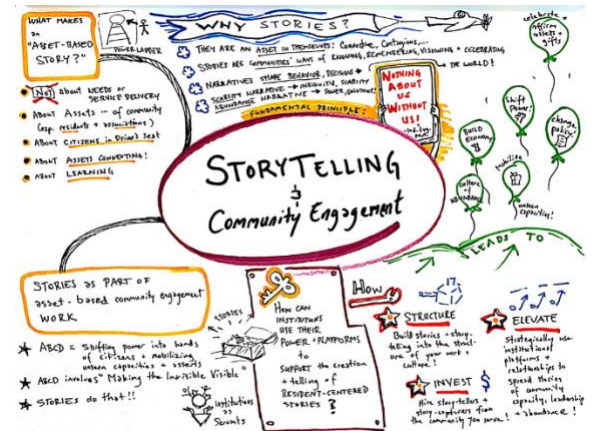 WHAT MAKES
an
"ASSET-BASED
STORY?"
POWER LADDER
NOT about NEEDS or
SERVICE DELIVERY
ABOUT ASSETS ... of community
(esp. residents + associations)
ABOUT CITIZENS in Driver's Seat
ABOUT ASSETS CONNECTING!
ABOUT LEARNING
WHY STORIES?
THEY ARE AN ASSET IN THEMSELVES! Connective, Contagious,...
STORIES are COMMUNITIES' WAYS of KNOWING, REMEMBERING, VISIONING + CELEBRATING
THE WORLD!
NARRATIVES SHAPE BEHAVIOR, DECISIONS
SCARCITY NARRATIVE → INEQUITY, SCARCITY
ABUNDANCE NARRATIVE → POWER,
FUNDAMENTAL PRINCIPLE:
NOTHING
ABOUT
US
WITHOUT
US!
celebrate +
affirm
assets +
gifts
Shift
Power!
change
policy!
BUILD
ECONOMY
Mobilize
unseen
capacities!
culture
of
ABUNDANCE
LEADS TO
STORYTELLING
&
Community Engagement
STORIES as PART OF
asset-based community engagement
WORK
ABCD = Shifting power into hands
of citizens + mobilizing
unseen capacities + assets
ABCD involves "Making the Invisible Visible"
STORIES do that!!
STORIES
Institutions
as
Servants
HOW CAN
INSTITUTIONS
USE THEIR
POWER + PLATFORMS
to
SUPPORT the creation
+ telling of
RESIDENT-CENTERED
STORIES?
How
STRUCTURE
Build stories + story-
telling into the struct-
ure of your work +
culture!
INVEST $
Hire story-tellers +
story-capturers from
the community you serve!
ELEVATE
Strategically use
institutional
platforms +
relationships to
spread stories
of community
capacity, leadership
+ abundance!